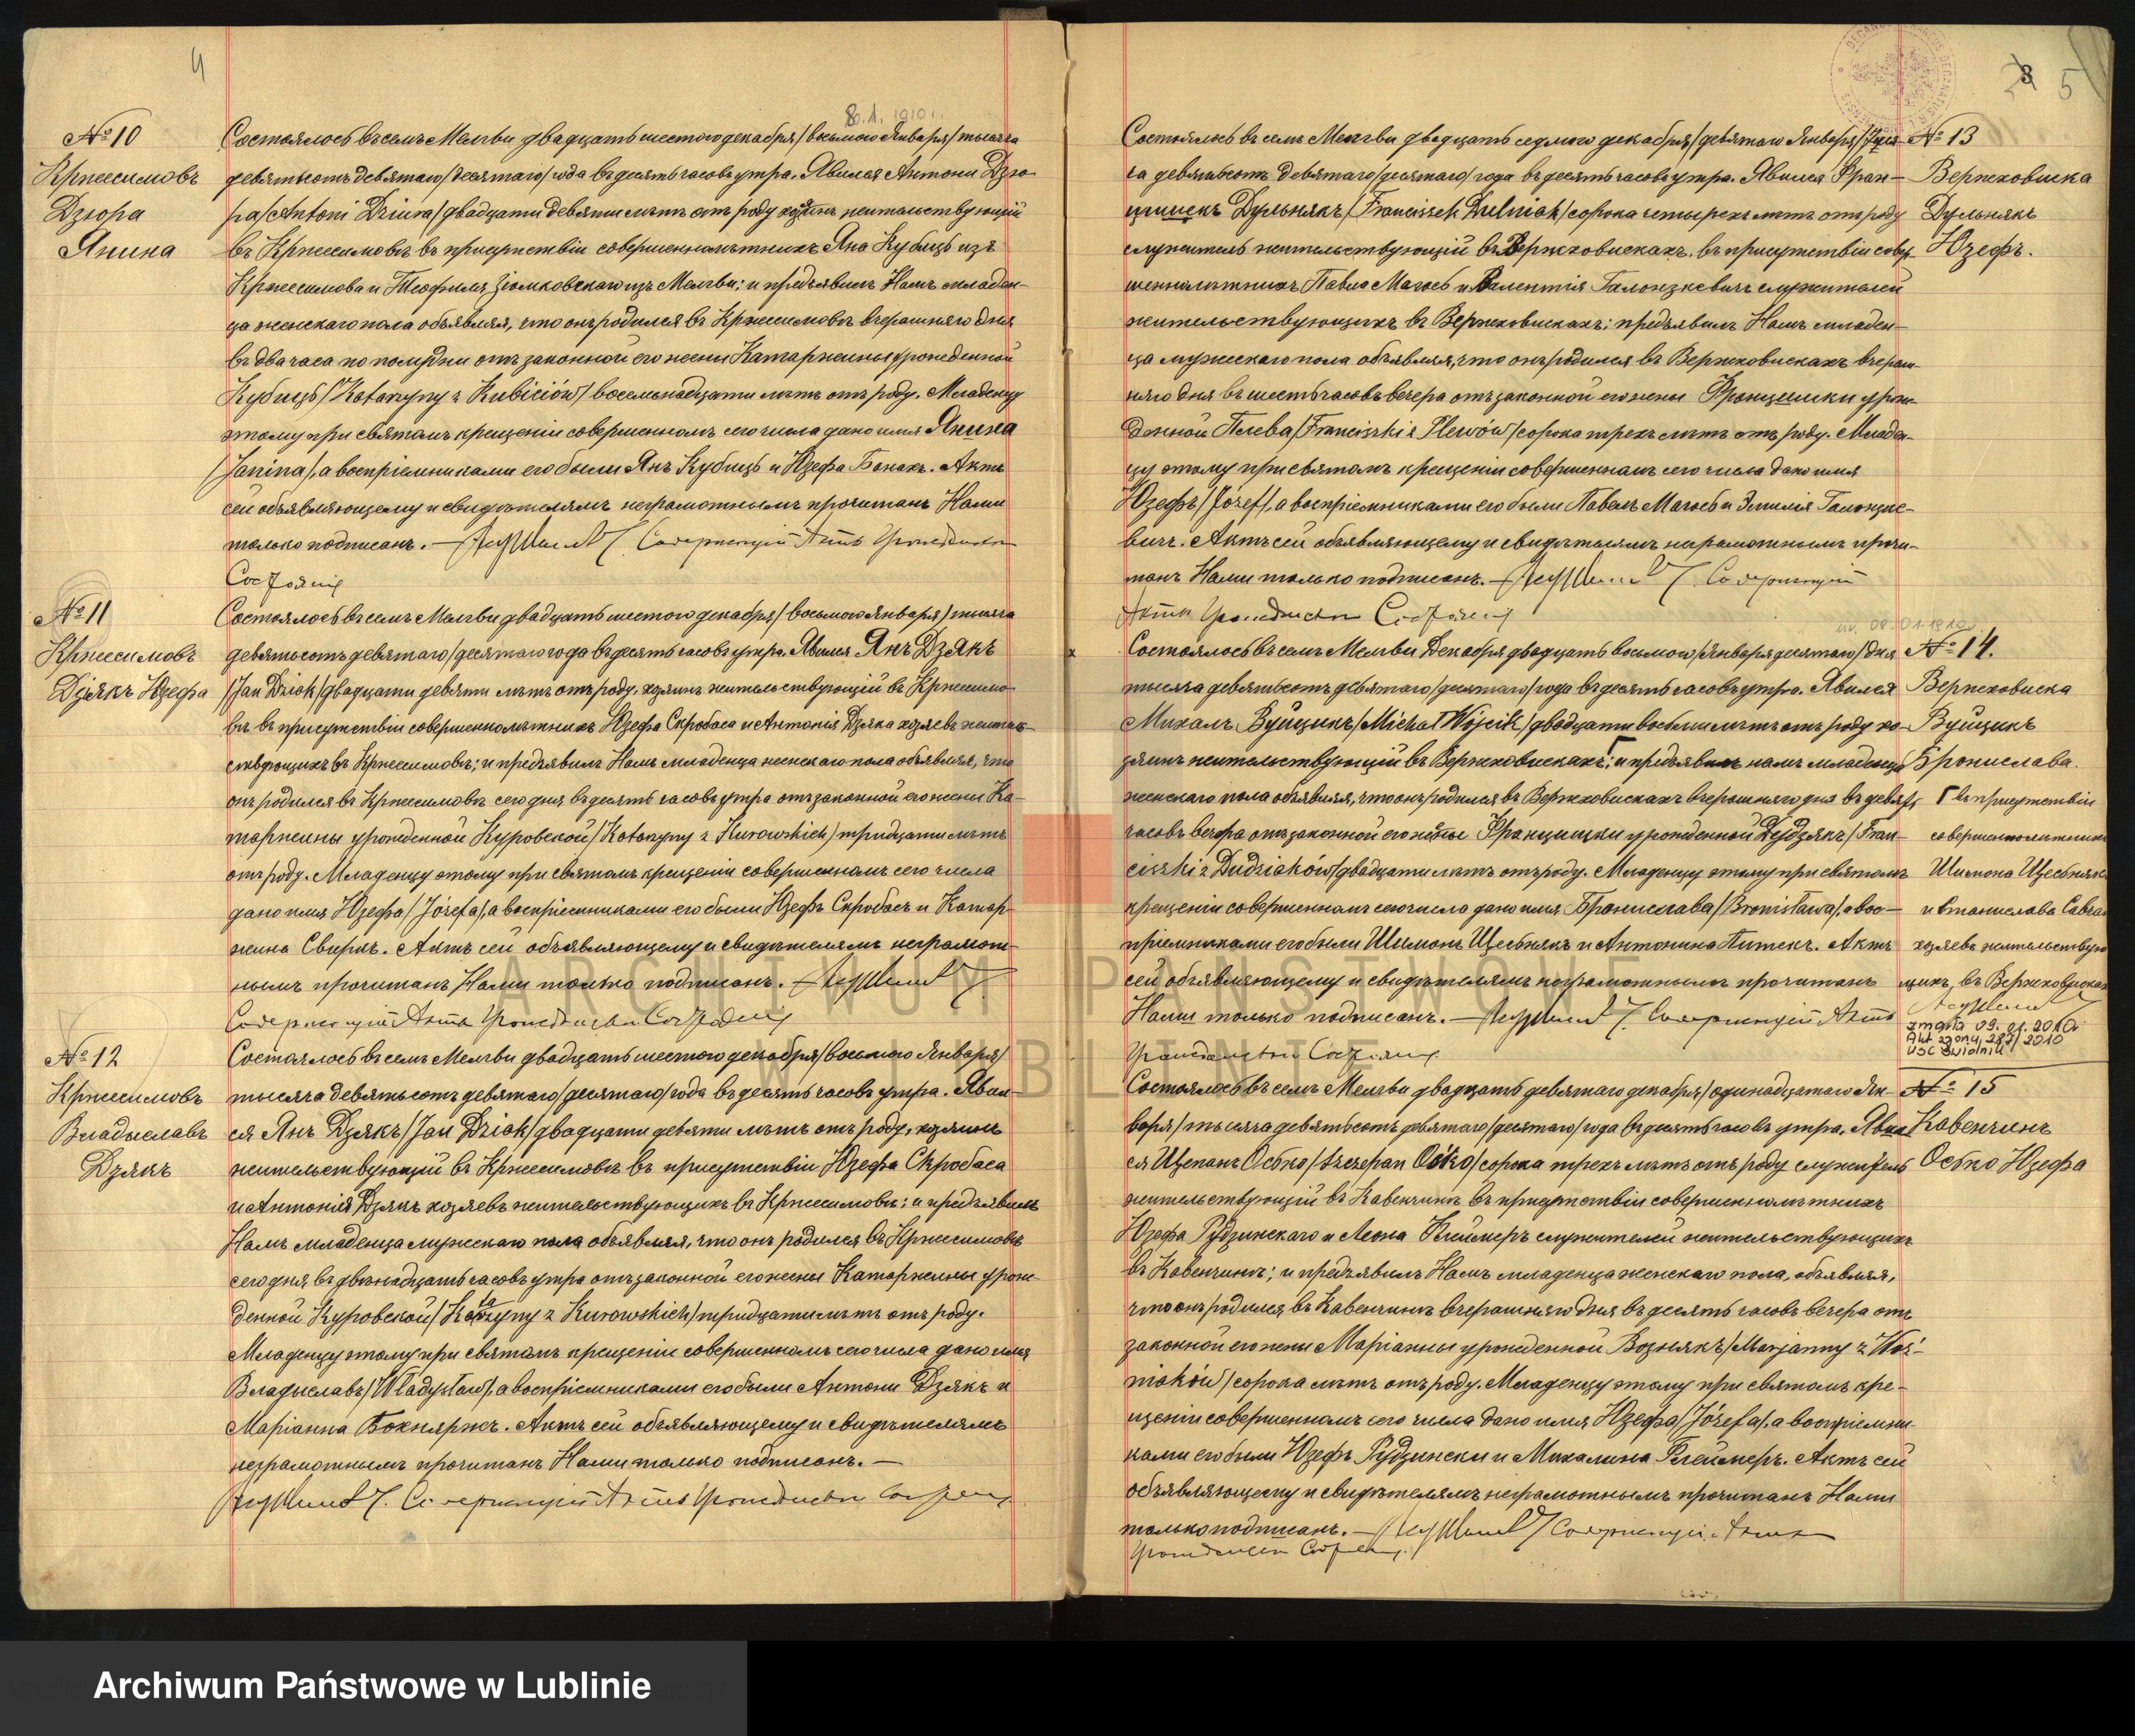 4
8.1.1910
№ 10
Кржесимовъ
Дзюра
Янина
Состоялось въ селѣ Мелгви двадцать шестого декабря/восьмого Января/тысяча
девятьсотъ девятаго/десятаго/года въ десять часовъ утра. Явился Антони Дзю-
ра/Antoni Dziura/двадцати девяти лѣтъ отъ роду хозяинъ жительствующій
въ Кржесимовѣ въ присутствіи совершеннолѣтнихъ Яна Кубиць изъ
Кржесимова и Теофиля Зіомковскаго изъ Мелгви; и предъявилъ Намъ младен-
ца женскаго пола объявляя, что онъ родился въ Кржесимовѣ вчерашняго дня
въ два часа по полудни отъ законной его жены Катаржины урожденной
Кубиць/Katarzyny z Kubiciów/восемьнадцати лѣтъ отъ роду. Младенцу
этому при святомъ крещеніи совершенномъ сего числа дано имя Янина
/Janina/, а воспріемниками его были Янъ Кубиць и Юзефа Банахъ. Актъ
сей объявляющему и свидѣтелямъ неграмотнымъ прочитанъ Нами
только подписанъ. — Содержащій Акты Гражданскаго
Состоянія
№ 11
Кржесимовъ
Дзякъ Юзефа
Состоялось въ селѣ Мелгви двадцать шестого декабря/восьмого Января/тысяча
девятьсотъ девятаго/десятаго года въ десять часовъ утра. Явился Янъ Дзякъ
/Jan Dziak/двадцати девяти лѣтъ отъ роду, хозяинъ жительствующій въ Кржесимо-
вѣ въ присутствіи совершеннолѣтнихъ Юзефа Скробаса и Антонія Дзяка хозяевъ житель-
ствующихъ въ Кржесимовѣ; и предъявилъ Намъ младенца женскаго пола объявляя, что
онъ родился въ Кржесимовѣ сего дня въ десять часовъ утра отъ законной его жены Ка-
таржины урожденной Куровской/Katarzyny z Kurowskich/тридцати лѣтъ
отъ роду. Младенцу этому при святомъ крещеніи совершенномъ сего числа
дано имя Юзефа/Józefa/, а воспріемниками его были Юзефъ Скробасъ и Катар-
жина Свиркъ. Актъ сей объявляющему и свидѣтелямъ неграмот-
нымъ прочитанъ Нами только подписанъ.
Содержащій Акты Гражданскаго Состоянія
№ 12
Кржесимовъ
Владыславъ
Дзякъ
Состоялось въ селѣ Мелгви двадцать шестого декабря/восьмого Января/
тысяча девятьсотъ девятаго/десятаго/года въ десять часовъ утра. Явил-
ся Янъ Дзякъ/Jan Dziak/двадцати девяти лѣтъ отъ роду, хозяинъ
жительствующій въ Кржесимовѣ въ присутствіи Юзефа Скробаса
и Антонія Дзякъ хозяевъ жительствующихъ въ Кржесимовѣ; и предъявилъ
Намъ младенца мужскаго пола объявляя, что онъ родился въ Кржесимовѣ
сего дня въ двѣнадцать часовъ утра отъ законной его жены Катаржины урож-
денной Куровской/Katarzyny z Kurowskich/тридцати лѣтъ отъ роду.
Младенцу этому при святомъ крещеніи совершенномъ сего числа дано имя
Владыславъ/Władysław/, а воспріемниками его были Антони Дзякъ и
Маріанна Бокняржъ. Актъ сей объявляющему и свидѣтелямъ
неграмотнымъ прочитанъ Нами только подписанъ. —
Содержащій Акты Гражданскаго
3 5
№ 13
Вержховиска
Дульнякъ
Юзефъ.
Состоялось въ селѣ Мелгви двадцать седмого декабря/девятаго Января/тыся-
ча девятьсотъ девятаго/десятаго/года въ десять часовъ утра. Явился Фран-
цишекъ Дульнякъ/Franciszek Dulniak/сорока четырехъ лѣтъ отъ роду
служитель жительствующій въ Вержховискахъ, въ присутствіи совер-
шеннолѣтнихъ Павла Магось и Валентія Галонзкевичъ служителей
жительствующихъ въ Вержховискахъ; предъявилъ Намъ младен-
ца мужескаго пола объявляя, что онъ родился въ Вержховискахъ вчераш-
няго дня въ шесть часовъ вечера отъ законной его жены Францишки урож-
денной Плева/Franciszki z Plewów/сорока трехъ лѣтъ отъ роду. Младен-
цу этому при святомъ крещеніи совершенномъ сего числа дано имя
Юзефъ/Józef/, а воспріемниками его были Павелъ Магось и Эмилія Галонзке-
вичъ. Актъ сей объявляющему и свидѣтелямъ неграмотнымъ прочи-
танъ Нами только подписанъ. — Содержащій
Акты Гражданскаго Состоянія
ur. 08.01.1910
№ 14.
Вержховиска
Вуйцикъ
Бронислава.
Состоялось въ селѣ Мелгви Декабря двадцать восьмого/Января десятаго/дня
тысяча девятьсотъ девятаго/десятаго/года въ десять часовъ утра. Явился
Михалъ Вуйцикъ/Michał Wójcik/двадцати восьми лѣтъ отъ роду хо-
зяинъ жительствующій въ Вержховискахъ; и предъявилъ намъ младенца
женскаго пола объявляя, что онъ родился въ Вержховискахъ вчерашняго дня въ девять
часовъ вечера отъ законной его жены Францишки урожденной Дудзякъ/Fran-
ciszki z Dudziaków/двадцати лѣтъ отъ роду. Младенцу этому при святомъ
крещеніи совершенномъ сего числа дано имя Бронислава/Bronisława/, а вос-
пріемниками его были Шимонъ Щесьнякъ и Антонина Питекъ. Актъ
сей объявляющему и свидѣтелямъ неграмотнымъ прочитанъ
Нами только подписанъ. — Содержащій Акты
Гражданскаго Состоянія
Г въ присутствіи
совершеннолѣтнихъ
Шимона Щесьнякъ
и Станислава Савча
хозяевъ жительствую-
щихъ въ Вержховискахъ
zmarła 09.01.2010
Akt zgonu 287/2010
USC Świdnik
№ 15
Кавенчинъ
Осько Юзефа
Состоялось въ селѣ Мелгви двадцать девятаго декабря/одинадцатаго Ян-
варя/тысяча девятьсотъ девятаго/десятаго/года въ десять часовъ утра. Явил-
ся Щепанъ Осько/Szczepan Ośko/сорока трехъ лѣтъ отъ роду служитель
жительствующій въ Кавенчинѣ въ присутствіи совершеннолѣтнихъ
Юзефа Рудзинскаго и Леона Клеймеръ служителей жительствующихъ
въ Кавенчинѣ; и предъявилъ Намъ младенца женскаго пола, объявляя,
что онъ родился въ Кавенчинѣ вчерашняго дня въ десять часовъ вечера отъ
законной его жены Маріанны урожденной Вознякъ/Marjanny z Woź-
niaków/сорока лѣтъ отъ роду. Младенцу этому при святомъ кре-
щеніи совершенномъ сего числа дано имя Юзефа/Józefa/, а воспріемни-
ками его были Юзефъ Рудзински и Михалина Клеймеръ. Актъ сей
объявляющему и свидѣтелямъ неграмотнымъ прочитанъ Нами
только подписанъ. — Содержащій Акты
Гражданскаго
ARCHIWUM PAŃSTWOWE
W LUBLINIE
Archiwum Państwowe w Lublinie